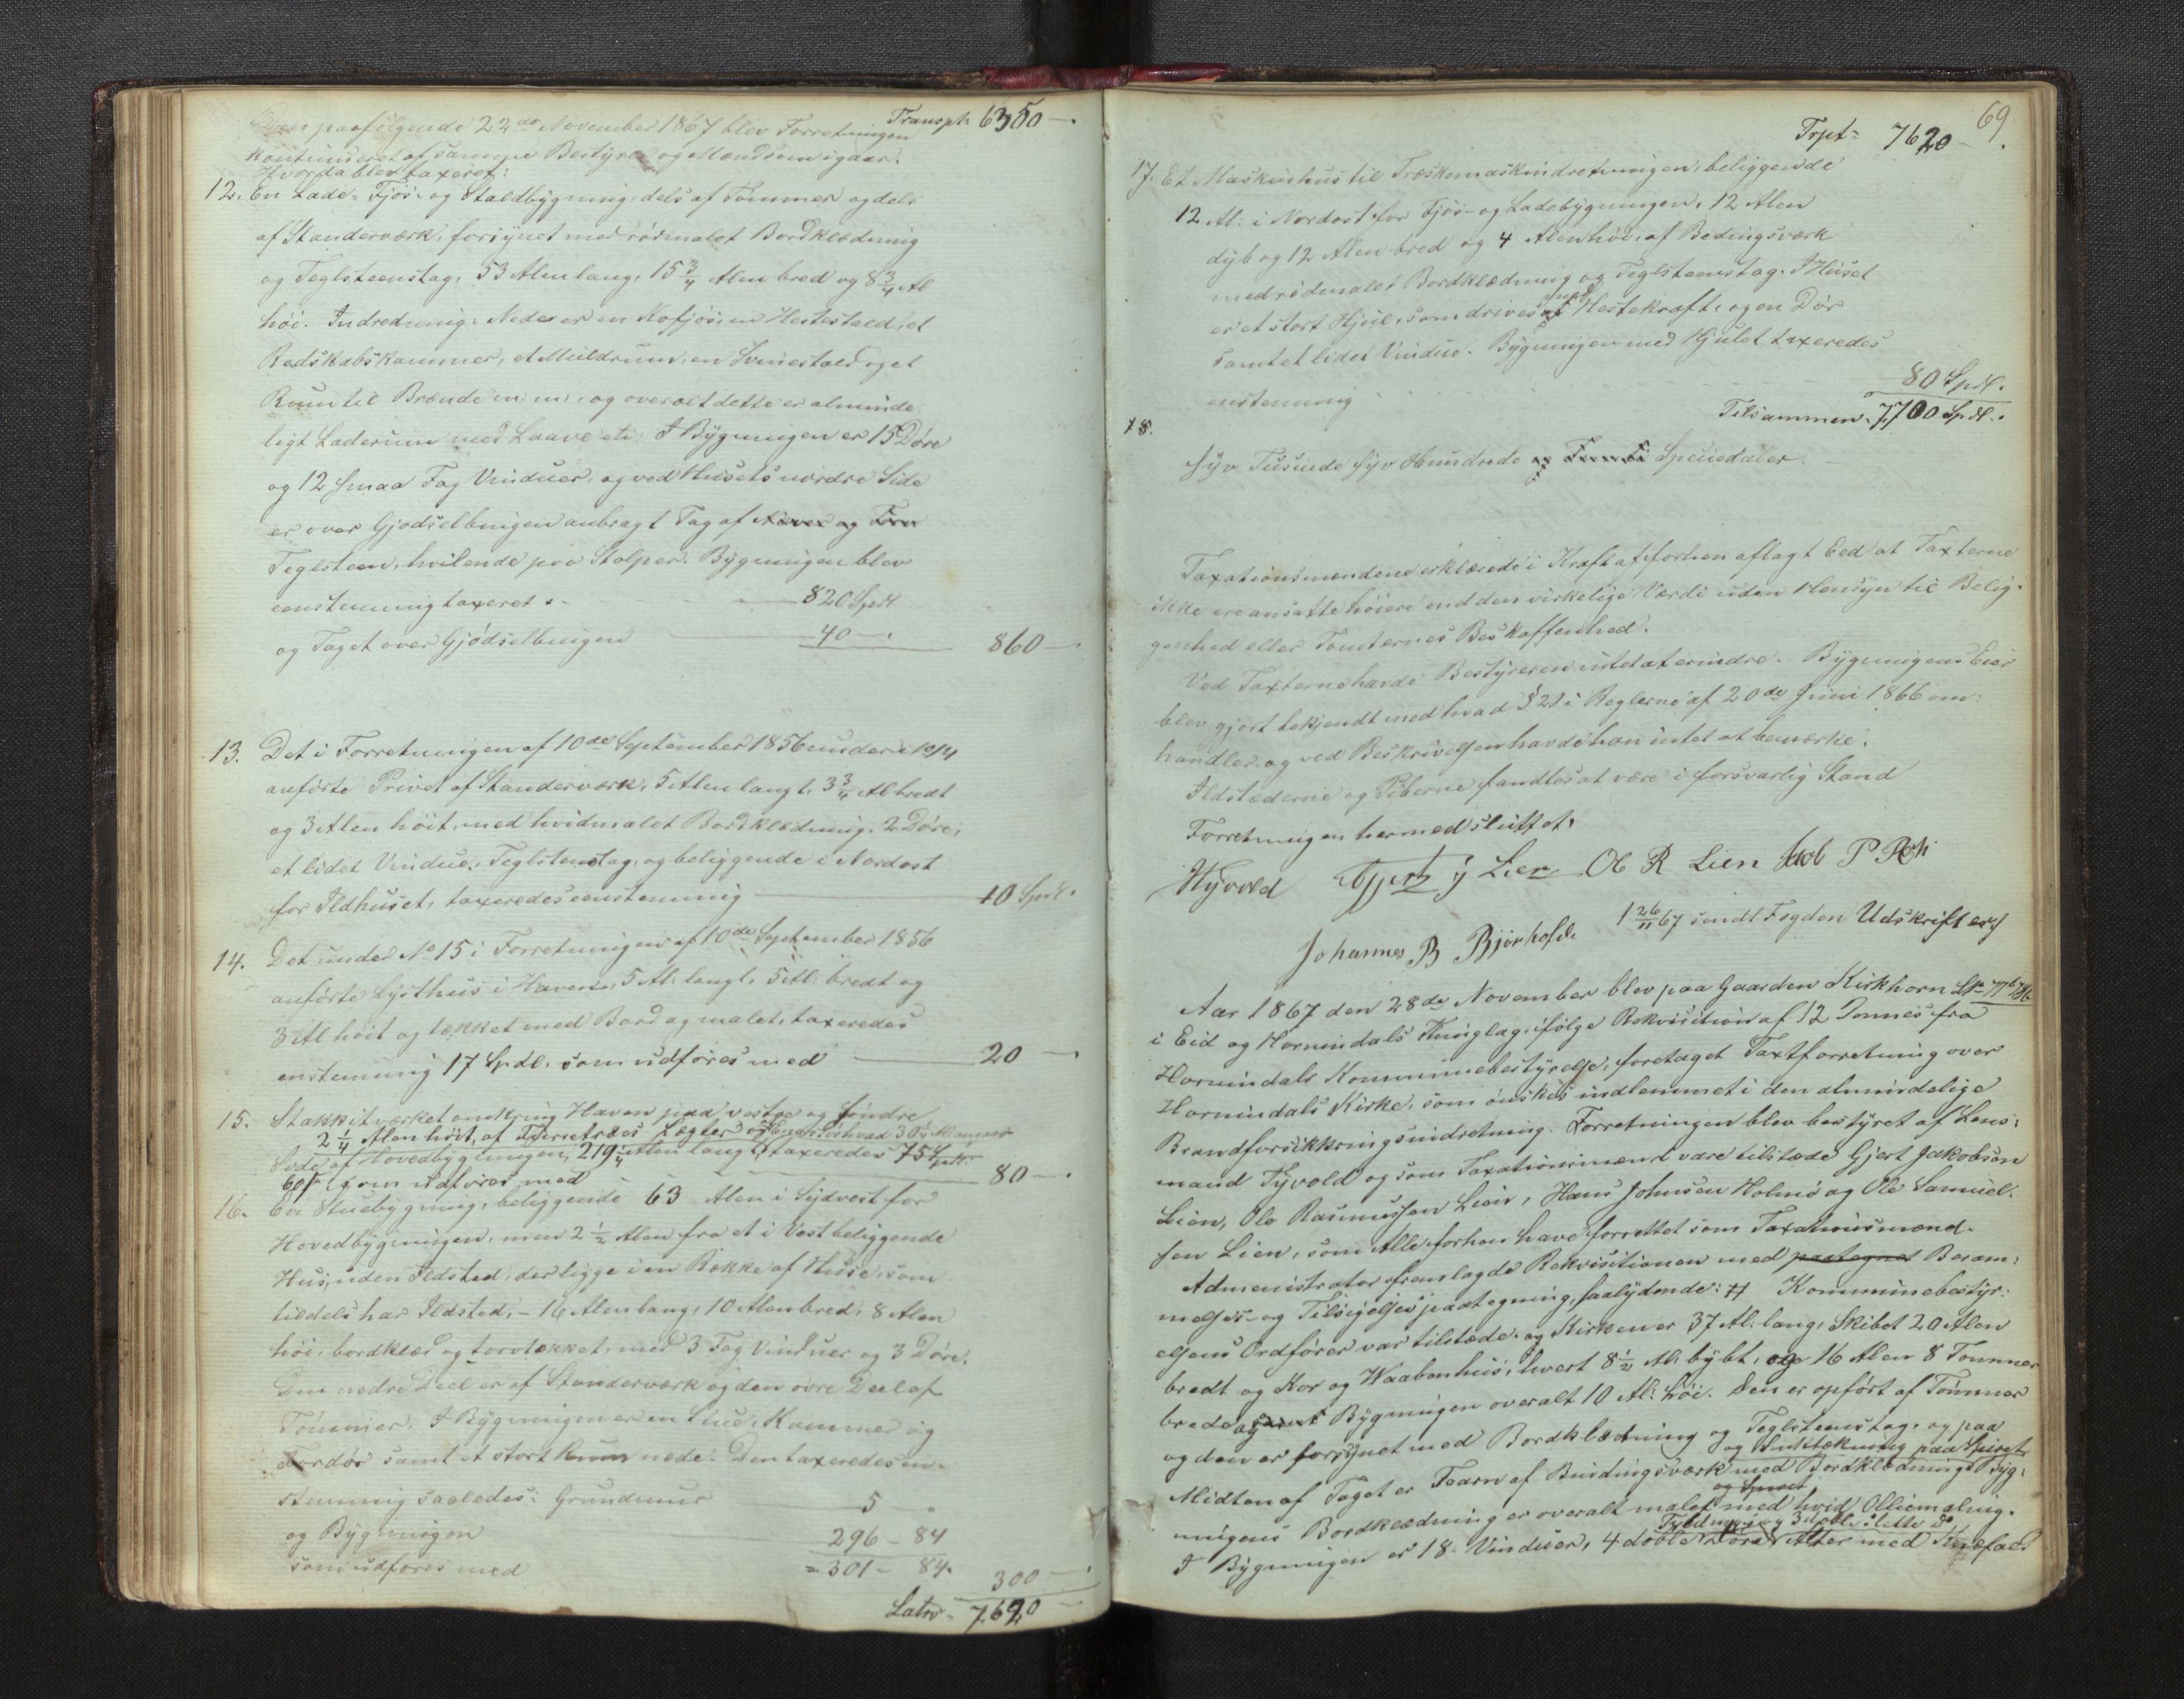 Transpt. 6350 —.
Den paafølgende 22de November 1867 blev Forretningen
kontinueret af samme Bestyrer og Mænd som igaar.
Hvorda blev taxeret:
12. En Lade- Fjøs- og Staldbygning, dels af Tømmer og dels
af Standerværk, forsynet med rødmalet Bordklædning
og Teglsteenstag, 53 Alen lang, 15 3/4 Alen bred og 8 3/4 Al
høi. Indredning: Nede er en Kofjøs, en Hestestald, et
Redskabskammer, et Meldrum, en Svinestald og et
Rum til Brænde m: m:, og overalt dette er alminde
ligt Laderum med Laave etc: I Bygningen er 15 Døre
og 12 smaa Fag Vinduer, og ved Husets nordre Side
er over Gjødselbingen anbragt Tag af Næver og Torv
Teglsteen, hvilende paa Stolper. Bygningen blev
eenstemmig taxeret — 820 Spdl
og Taget over Gjødselbingen — 40 —. 860 —.
13. Det i Forretningen af 10de September 1856 under No 14
anførte Privet af Standerværk, 5 Alen langt, 3 3/4 Al bredt
og 3 Alen høit, med hvidmalet Bordklædning, 2 Døre,
et lidet Vindue, Teglsteenstag, og beliggende i Nordost
for Ildhuset, taxeredes eenstemmig — 10 Spdl.
14. Det under No 15 i Forretningen af 10de September 1856
anførte Lysthus i Haven, 5 Al: langt, 5 Al: bredt og
3 Al høit og tækket med Bord og malet, taxeredes
enstemmig 17 Spdl. som udføres med — 20 —
15. Stakkitværket omkring Haven paa vestre og søndre
2 1/4 Alen høit, af Fyrretræes Lægter og
Side af Hovedbygningen, 219 1/4 Alen langt, taxeredes 75 Spdl.
som udføres med — 80 —.
16. En Stuebygning, beliggende 63 Alen i Sydvest for
Hovedbygningen, men 2 1/2 Alen fra et i Vest beliggende
Hus, uden Ildsted, der ligge i en Række af Huse, som
tildels har Ildsted, - 16 Alen lang, 10 Alen bred, 8 Alen
høi, bordklæd og torvtækket, med 3 Fag Vinduer og 3 Døre.
Den nedre Deel er af Standerværk og den øvre Deel af
Tømmer. I Bygningen er en Stue, Kammer og
Fordør samt et stort Rum nede. Den taxeredes en-
stemmig saaledes: Grundmur — 5 "
og Bygningen 296 - 84
som udføres med = 301 - 84. 300 —.
Latus 7620 —
69.
Trpt= 7620 —
17. Et Maskinhus til Træskemaskindretningen, beliggende
12 Al: i Nordost for Fjøs- og Ladebygningen, 12 Alen
dyb og 12 Alen bred og 4 Alen høi, af Bedingsværk
med rødmalet Bordklædning og Teglsteenstag. I Huset
er et stort Hjul, som drives af med Hestekraft, og en Dør
samt et lidet Vindue. Bygningen med Hjulet taxeredes
enstemmig 80 Spdl.
Tilsammen 7,700 Spdl.
18.
Syv Tusinde syv Hundrede Speciedaler. —
Taxationsmændene erklærede i Kraft af forhen aflagt Eed at Taxterne
ikke ere ansatte høiere end den virkelige Værdi uden Hensyn til Belig-
genhed eller Tomternes Beskaffenhed.
Ved Taxterne havde Bestyreren intet at erindre. Bygningens Eier
blev gjort bekjendt med hvad § 21 i Reglerne af 20de Juni 1866 om:
handler, og ved Beskrivelsen havde han intet at bemærke.
Ildstederne og Piberne fandtes at være i forsvarlig Stand
Forretningen hermed sluttet.
Tyvold Gjert J Lien Ol R Lien
Johannes B
1 26/11 67 sendt Fogden Udskrift
Aar 1867 den 28de November blev paa Gaarden Kirkhorn
i Eid og Hornindals Thinglag, ifølge Rekvisition af 12 Dennes fra
Hornindals Kommunebestyrelse, foretaget Taxtforretning over
Hornindals Kirke, som ønskes indlemmet i den almindelige
Brandforsikkringsindretning. Forretningen blev bestyret af Lens:
mand Tyvold og som Taxationsmænd vare tilstæde Gjert Jakobsen
Lien, Ole Rasmussen Lien, Hans Johnsen Holmø og Ole Samuel-
sen Lien, som Alle forhen have forrettet som Taxationsmænd.
Administrator fremlagde Rekvisitionen med paategnet Beram:
melses- og Tilsigelsespaategning, saalydende: # Kommunebestyr:
elsens Ordfører var tilstæde, og Kirken er 37 Al. lang, Skibet 20 Alen
bredt og Kor og Vaabenhus, hvert 8 1/2 Al. bÿbt, og 16 Alen 8 Tommer
brede Bygningen overalt 10 Al: høi. Den er opført af Tømmer
og den er forsynet med Bordklædning og Teglsteenstag, og paa
og Zinktækning paa Spiret
Midten af Taget er Taarn af Bindingsværk med Bordklædning. Byg:
og Spiret
ningens Bordklædning er overalt malet med hvid Olliemaling.
I Bygningen er 18 Vinduer, 4 doble Døre, Alter med Knæfald